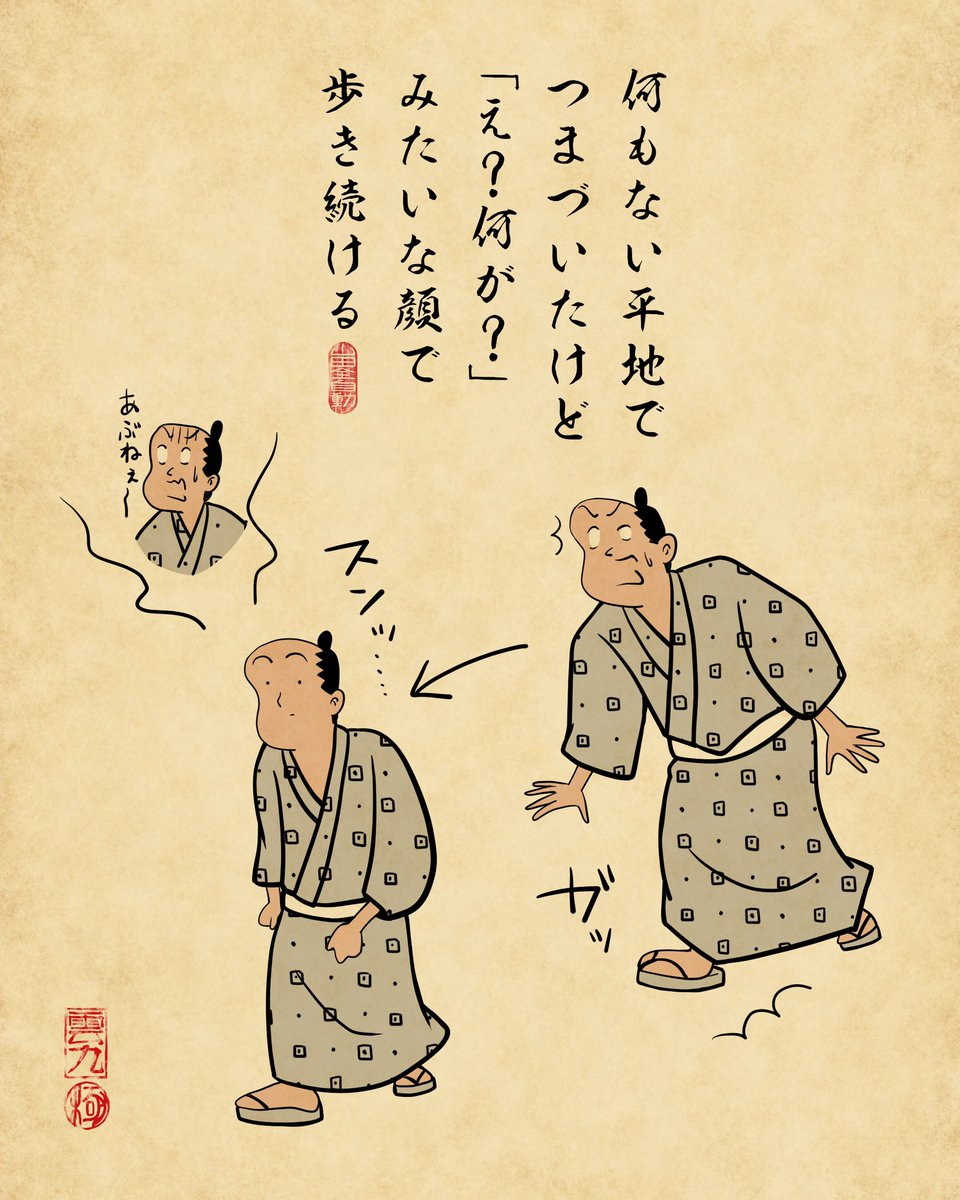 何もない平地で
つまづいたけど
「え？何が？」
みたいな顔で
歩き続ける
あぶねぇ〜
スンッ…
ガッ